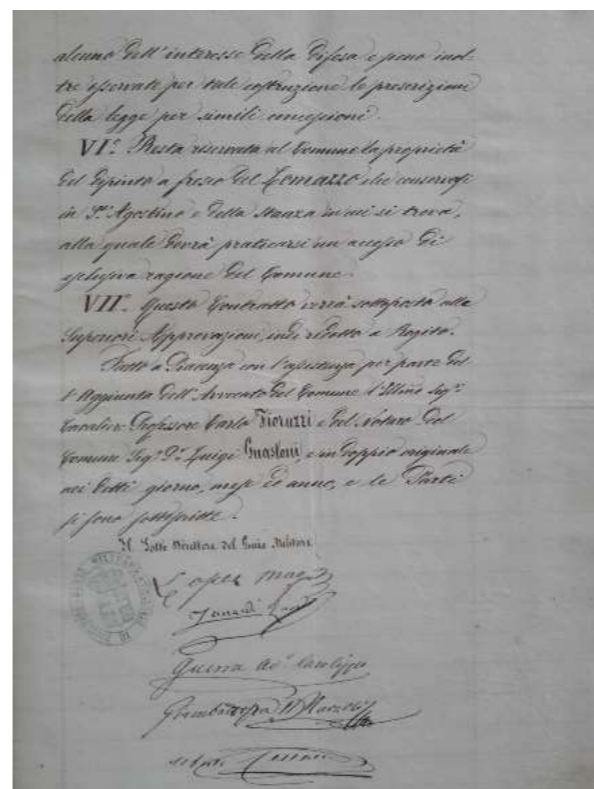 alcuno dell'interesse della difesa e però inol-
tre osservate per tale costruzione le prescrizioni
della legge per simili concessioni.
VI.° Resta riservata al Comune la proprietà
del dipinto a fresco del Lomazzo che conservasi
in S. Agostino e della Stanza in cui si trova,
alla quale dovrà praticarsi un accesso di
esclusiva ragione del Comune.
VII.° Questo Contratto verrà sottoposto alle
Superiori Approvazioni, indi ridotto a Rogito.
Fatto a Piacenza con l'assistenza per parte del
l'Aggiunta dell'Avvocato del Comune l'Illmo Sigr.
Cavaliere Professore Carlo Fioruzzi e del Notaro del
Comune Sigr. Dr. Luigi Guastoni, e in doppio originale
nei detti giorno, mese ed anno, e le Parti
si sono sottoscritte.
Il Sotto Direttore del Genio Militare
Lopez Magg
Guerra